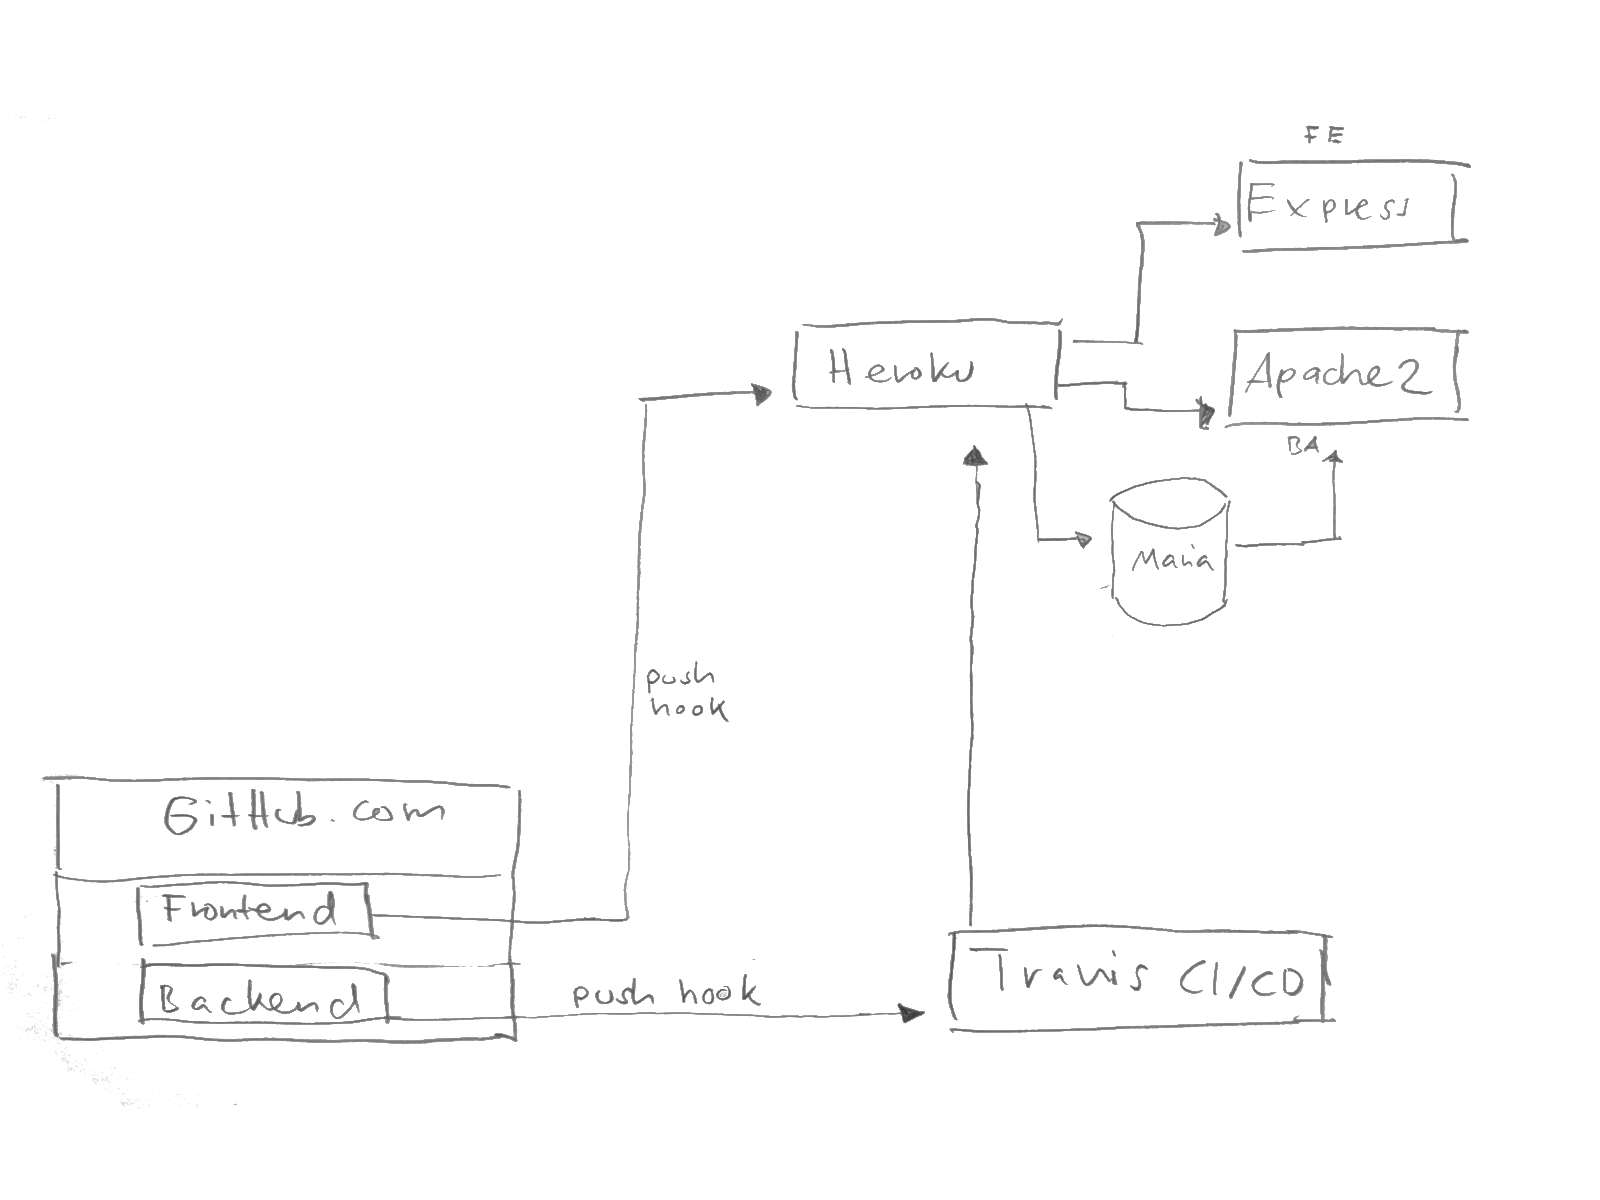 FE
Express
Heroku
Apache2
BA
Maria
push
hook
GitHub.com
Frontend
Backend
push hook
Travis CI/CD